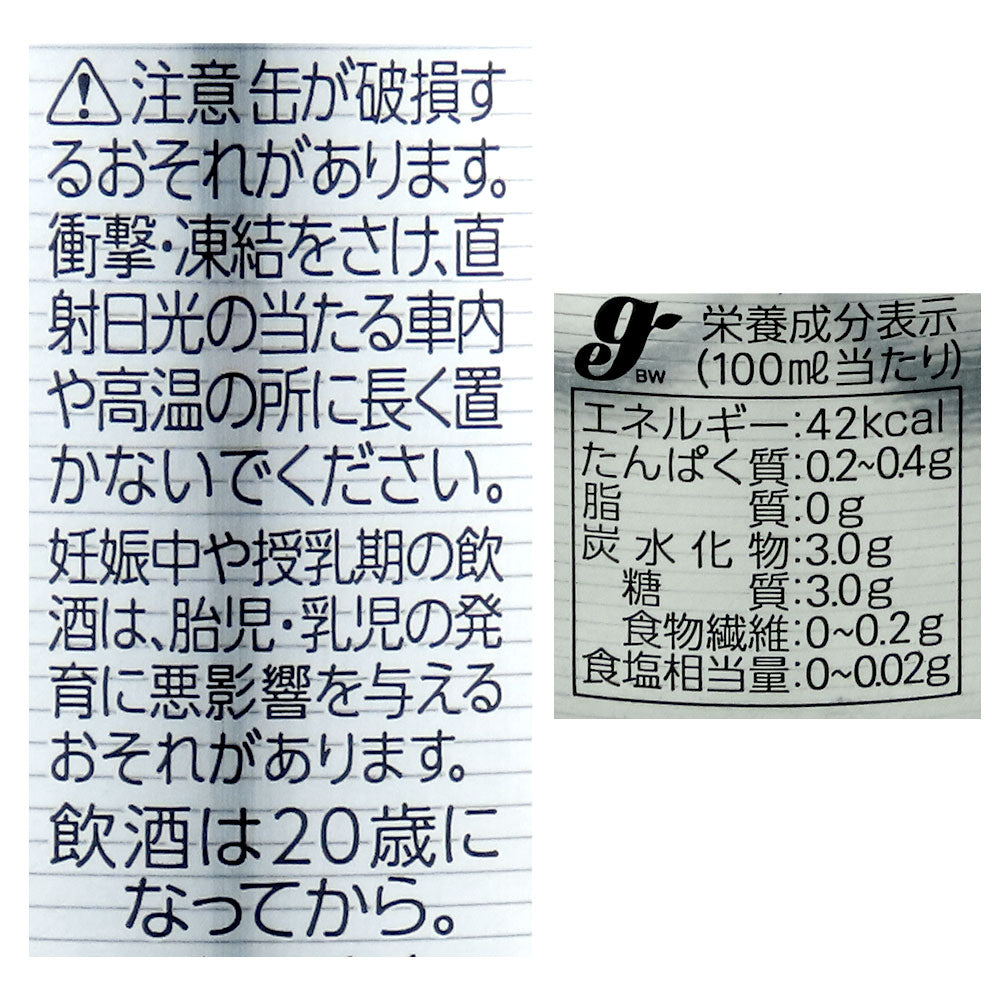 注意 缶が破損す
るおそれがあります。
衝撃・凍結をさけ、直
射日光の当たる車内
や高温の所に長く置
かないでください。
妊娠中や授乳期の飲
酒は、胎児・乳児の発
育に悪影響を与える
おそれがあります。
飲酒は20歳に
なってから。
BW
栄養成分表示
(100ml当たり)
エネルギー:42kcal
たんぱく質:0.2~0.4g
脂質:0g
炭水化物:3.0g
糖質:3.0g
食物繊維:0~0.2g
食塩相当量:0~0.02g